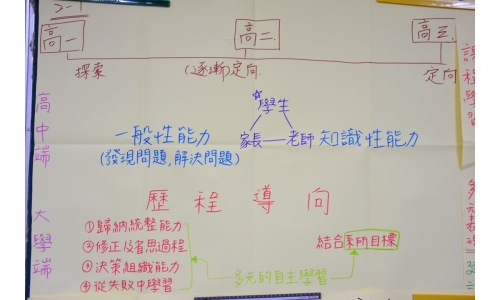 2-1
高一 高二 高三
探索 (逐漸)定向 定向
☆學生
家長——老師
一般性能力
(發現問題,解決問題)
知識性能力
高中端
歷程導向
大學端
①歸納統整能力
②修正及省思過程
③決策組織能力
④從失敗中學習
多元的自主學習
結合系所目標
課程學習